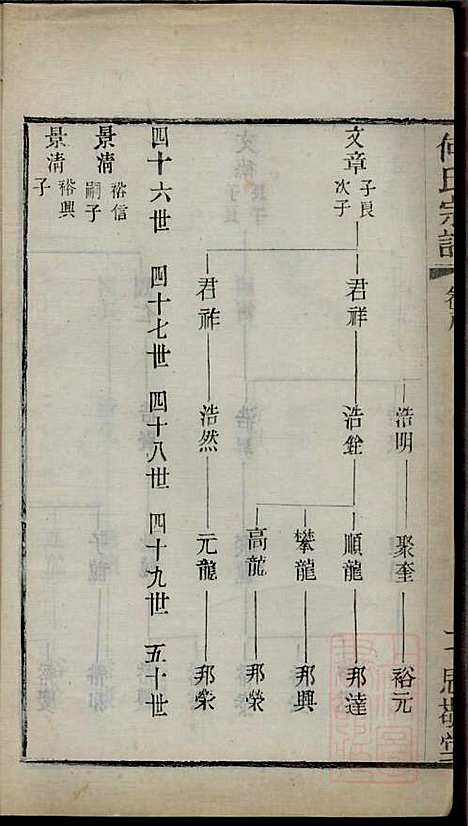 何氏宗譜
浩明 聚奎 裕元
文章 子良次子 君祥 浩銓 順龍 邦達
攀龍 邦興
高龍 邦榮
君祚 浩然 元龍 邦榮
四十六世 四十七世 四十八世 四十九世 五十世
景清 裕信嗣子
景清 裕興子